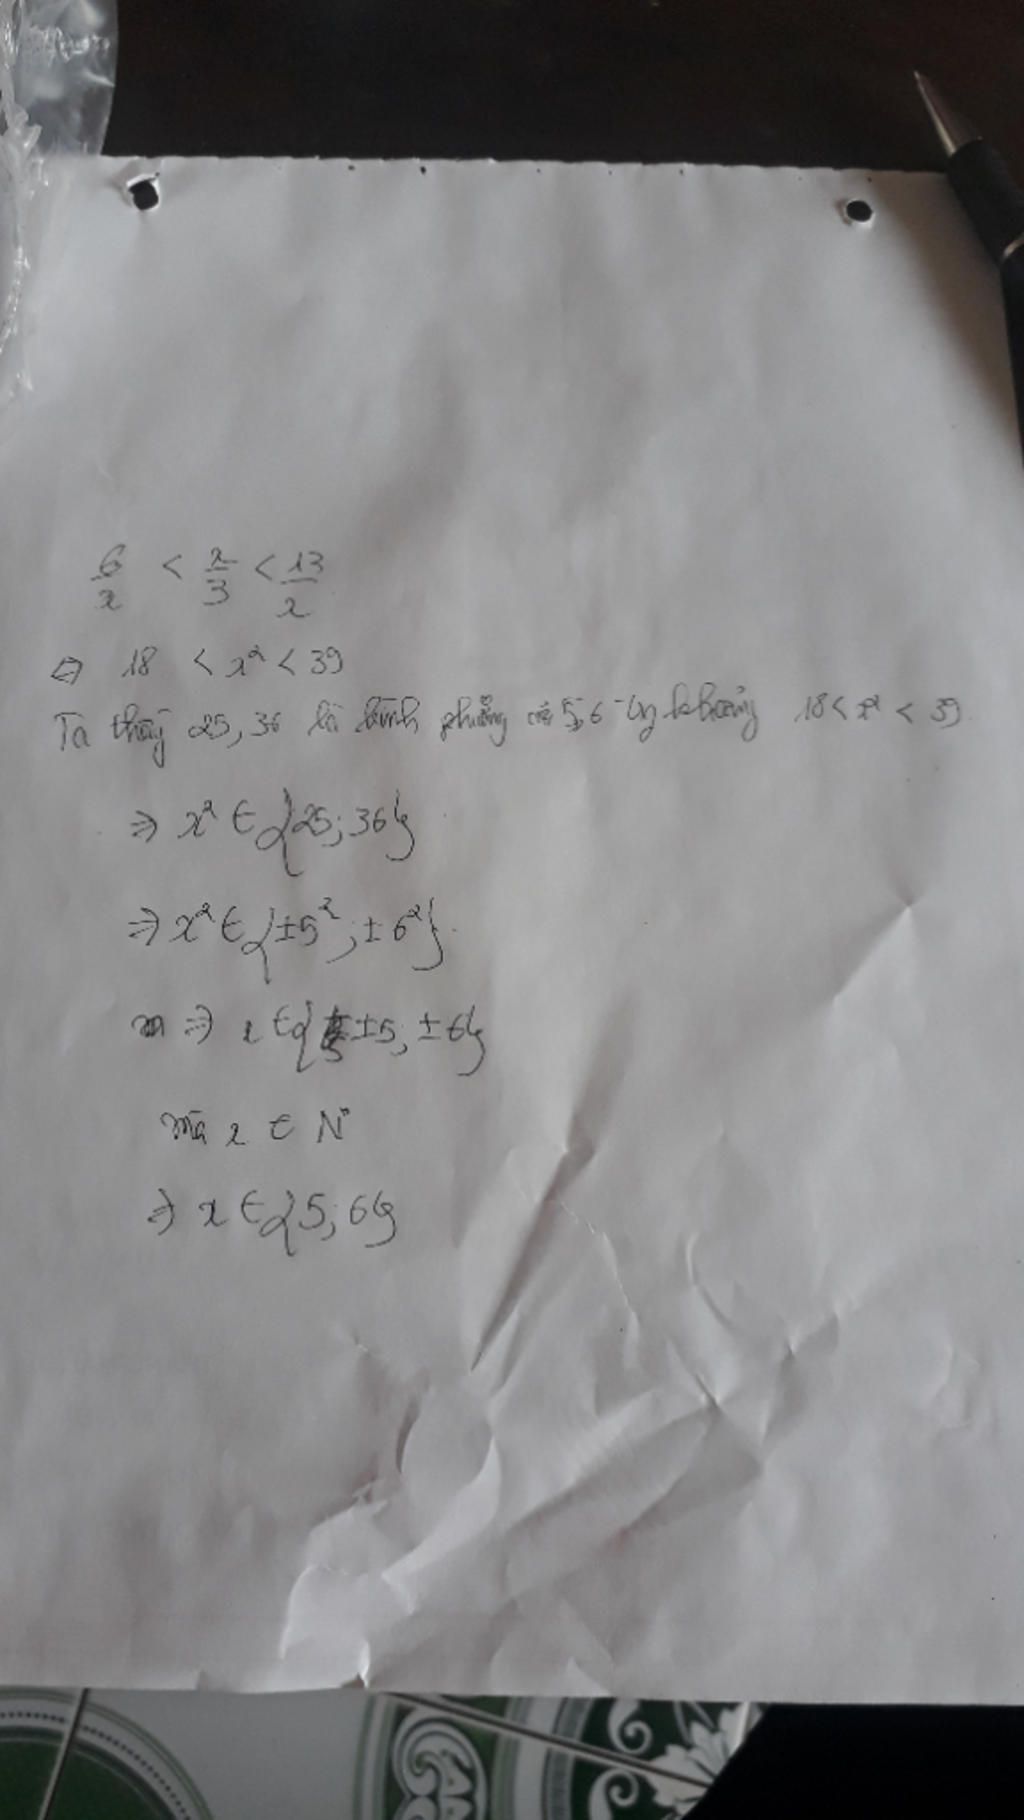 6/x < x/3 < 13/x
⇔ 18 < x² < 39
Ta thấy 25, 36 là bình phương của 5, 6 khoảng 18 < x² < 39
⇒ x² ∈ {25; 36}
⇒ x² ∈ {±5²; ±6²}
⇒ x ∈ {±5; ±6}
mà x ∈ N*
⇒ x ∈ {5; 6}